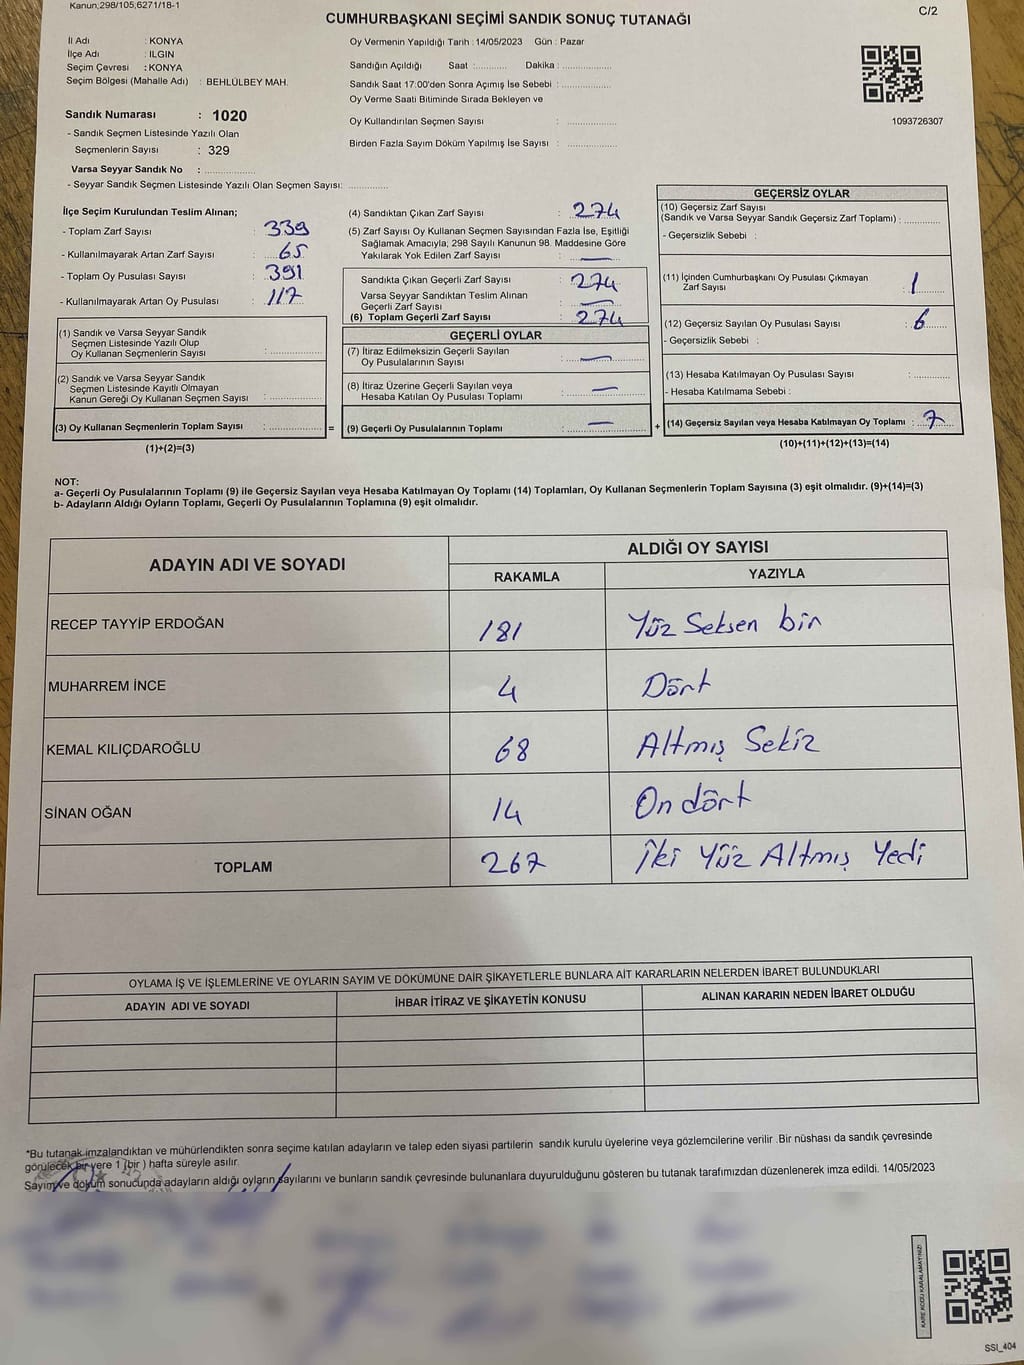 Kanun;298/105;6271/18-1
C/2
CUMHURBAŞKANI SEÇİMİ SANDIK SONUÇ TUTANAĞI
İl Adı : KONYA
İlçe Adı : ILGIN
Seçim Çevresi : KONYA
Seçim Bölgesi (Mahalle Adı) : BEHLÜLBEY MAH.
Sandık Numarası : 1020
- Sandık Seçmen Listesinde Yazılı Olan
Seçmenlerin Sayısı : 329
Varsa Seyyar Sandık No : ................
- Seyyar Sandık Seçmen Listesinde Yazılı Olan Seçmen Sayısı: .............
Oy Vermenin Yapıldığı Tarih : 14/05/2023 Gün : Pazar
Sandığın Açıldığı Saat :........... Dakika : ................
Sandık Saat 17:00'den Sonra Açımış İse Sebebi : ................
Oy Verme Saati Bitiminde Sırada Bekleyen ve
Oy Kullandırılan Seçmen Sayısı : ................
Birden Fazla Sayım Döküm Yapılmış İse Sayısı : ................
1093726307
İlçe Seçim Kurulundan Teslim Alınan;
- Toplam Zarf Sayısı : 339
- Kullanılmayarak Artan Zarf Sayısı : 65
- Toplam Oy Pusulası Sayısı : 391
- Kullanılmayarak Artan Oy Pusulası : 117
(1) Sandık ve Varsa Seyyar Sandık
Seçmen Listesinde Yazılı Olup
Oy Kullanan Seçmenlerin Sayısı : ................
(2) Sandık ve Varsa Seyyar Sandık
Seçmen Listesinde Kayıtlı Olmayan
Kanun Gereği Oy Kullanan Seçmen Sayısı : ................
(3) Oy Kullanan Seçmenlerin Toplam Sayısı : ................ =
(1)+(2)=(3)
(4) Sandıktan Çıkan Zarf Sayısı : 274
(5) Zarf Sayısı Oy Kullanan Seçmen Sayısından Fazla İse, Eşitliği
Sağlamak Amacıyla, 298 Sayılı Kanunun 98. Maddesine Göre
Yakılarak Yok Edilen Zarf Sayısı : —
Sandıkta Çıkan Geçerli Zarf Sayısı : 274
Varsa Seyyar Sandıktan Teslim Alınan
Geçerli Zarf Sayısı : —
(6) Toplam Geçerli Zarf Sayısı : 274
GEÇERLİ OYLAR
(7) İtiraz Edilmeksizin Geçerli Sayılan
Oy Pusulalarının Sayısı : —
(8) İtiraz Üzerine Geçerli Sayılan veya
Hesaba Katılan Oy Pusulası Toplamı : —
(9) Geçerli Oy Pusulalarının Toplamı : — +
GEÇERSİZ OYLAR
(10) Geçersiz Zarf Sayısı
(Sandık ve Varsa Seyyar Sandık Geçersiz Zarf Toplamı) : ............
- Geçersizlik Sebebi :
(11) İçinden Cumhurbaşkanı Oy Pusulası Çıkmayan
Zarf Sayısı : 1
(12) Geçersiz Sayılan Oy Pusulası Sayısı : 6
- Geçersizlik Sebebi :
(13) Hesaba Katılmayan Oy Pusulası Sayısı : ............
- Hesaba Katılmama Sebebi :
(14) Geçersiz Sayılan veya Hesaba Katılmayan Oy Toplamı : 7
(10)+(11)+(12)+(13)=(14)
NOT:
a- Geçerli Oy Pusulalarının Toplamı (9) ile Geçersiz Sayılan veya Hesaba Katılmayan Oy Toplamı (14) Toplamları, Oy Kullanan Seçmenlerin Toplam Sayısına (3) eşit olmalıdır. (9)+(14)=(3)
b- Adayların Aldığı Oyların Toplamı, Geçerli Oy Pusulalarının Toplamına (9) eşit olmalıdır.
ADAYIN ADI VE SOYADI
ALDIĞI OY SAYISI
RAKAMLA YAZIYLA
RECEP TAYYİP ERDOĞAN 181 Yüz Seksen bir
MUHARREM İNCE 4 Dört
KEMAL KILIÇDAROĞLU 68 Altmış Sekiz
SİNAN OĞAN 14 On dört
TOPLAM 267 İki Yüz Altmış Yedi
OYLAMA İŞ VE İŞLEMLERİNE VE OYLARIN SAYIM VE DÖKÜMÜNE DAİR ŞİKAYETLERLE BUNLARA AİT KARARLARIN NELERDEN İBARET BULUNDUKLARI
ADAYIN ADI VE SOYADI İHBAR İTİRAZ VE ŞİKAYETİN KONUSU ALINAN KARARIN NEDEN İBARET OLDUĞU
*Bu tutanak imzalandıktan ve mühürlendikten sonra seçime katılan adayların ve talep eden siyasi partilerin sandık kurulu üyelerine veya gözlemcilerine verilir .Bir nüshası da sandık çevresinde
görülecek bir yere 1 (bir ) hafta süreyle asılır.
Sayım ve döküm sonucunda adayların aldığı oyların sayılarını ve bunların sandık çevresinde bulunanlara duyurulduğunu gösteren bu tutanak tarafımızdan düzenlenerek imza edildi. 14/05/2023
KARE KODU KARALAMAYINIZ!
SSI_404